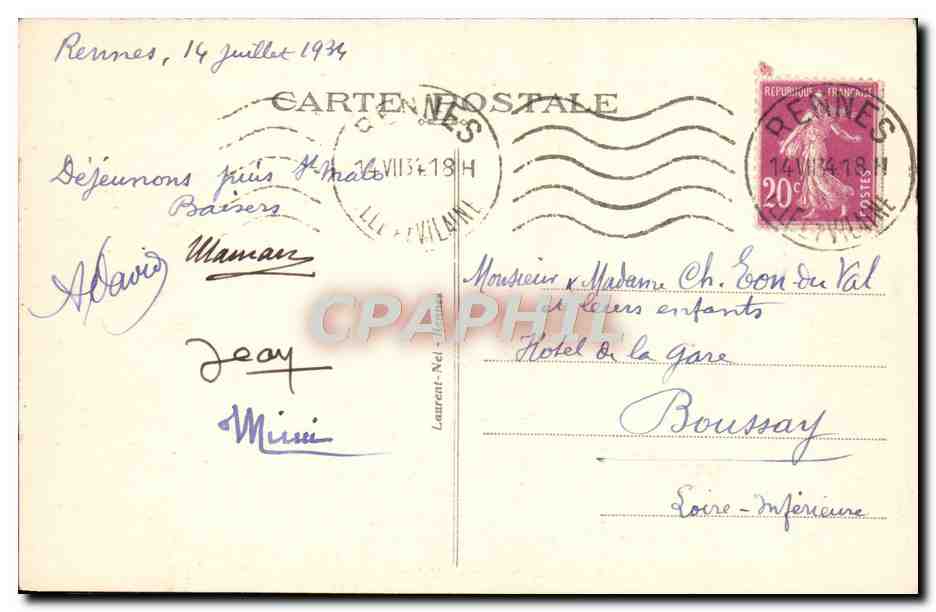 Rennes, 14 juillet 1934
CARTE POSTALE
RENNES
14 VII 34 18 H
ILLE ET VILAINE
REPUBLIQUE FRANÇAISE
20c
POSTES
RENNES
14 VII 34 18 H
ILLE ET VILAINE
Déjeunons puis St Malo
Baisers
Maman
ADavid
Jean
Mimi
Monsieur & Madame Ch. Eon-du Val
et leurs enfants
Hotel de la gare
Boussay
Loire-Inférieure
Laurent-Nel - Rennes
CPAPHIL